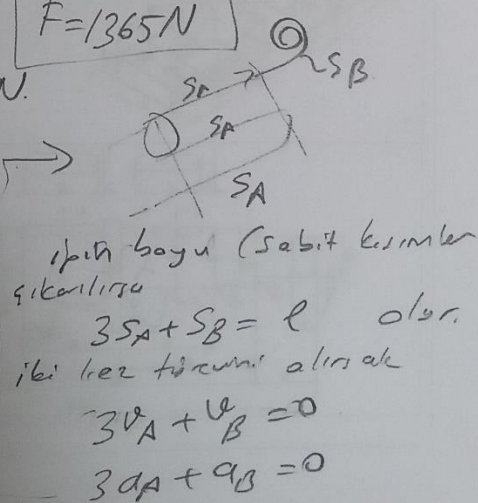 F=1365N
N.
SA
SB
SA
SA
ipin boyu (sabit kısımlar
çıkarılırsa
3SA+SB= l olur.
iki kez türevini alırsak
3VA + VB =0
3aA + aB =0